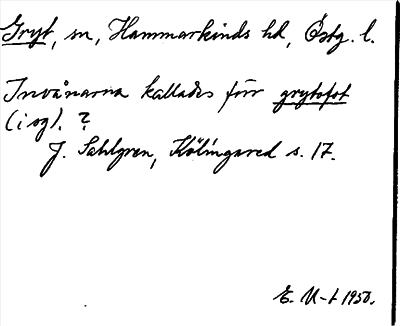 Gryt, sn, Hammarkinds hd, Östg. l.
Invånarna kallades för grytafot
(i sg). ?
J. Sahlgren, Kölingared s. 17.
E. U-t 1950.